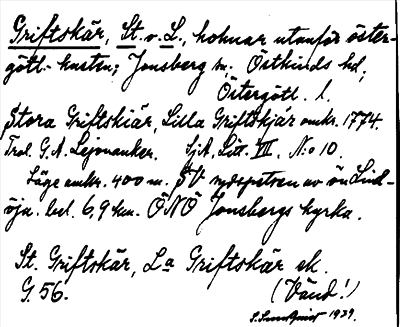 Griftskär, St. o. L., holmar utanför öster-
götl.- kusten; Jonsberg sn. Östkinds hd,
Östergötl. l.
Stora Griftskiär, Lilla Griftskjär omkr. 1774.
G. A. Lejonanker. SjA, Litt. III. N:o 10.
Läge omkr. 400 m. SV sydspetsen av ön Lind-
öja. bel. 6,9 km. ÖNÖ Jonsbergs kyrka.
St. Griftskär, La Griftskär ek.
G. 56. (Vänd!)
1939.